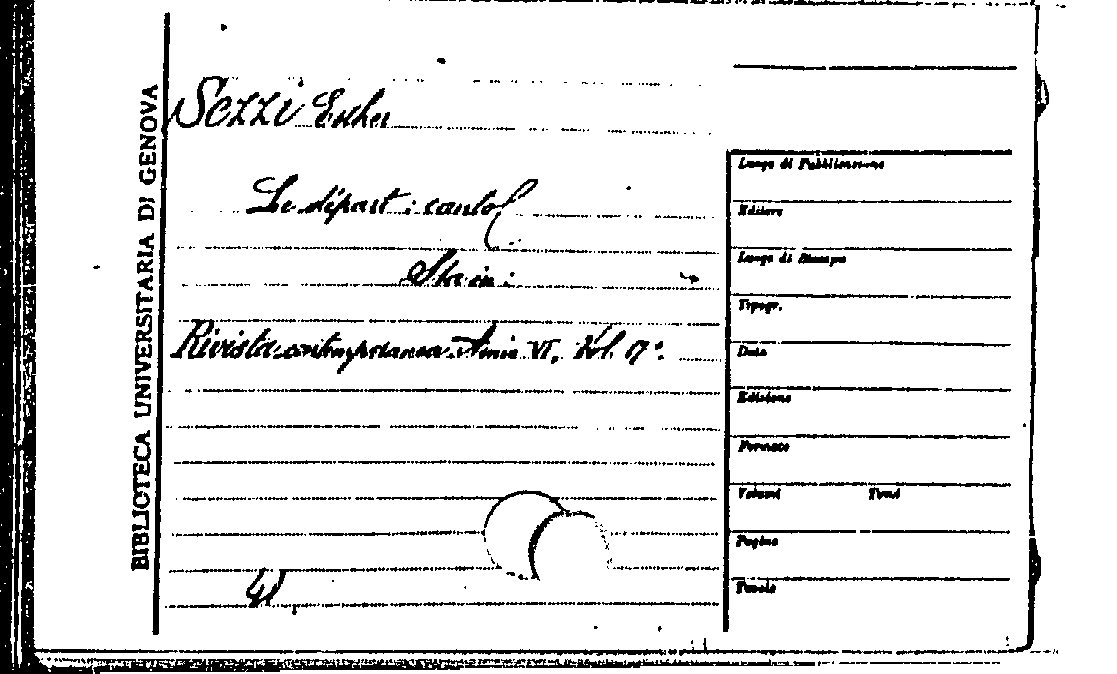 BIBLIOTECA UNIVERSITARIA DI GENOVA
Sezzi Ester
Le départ: canto
Rivista contemporanea. Anno VI, Vol. 
Luogo di Pubblicazione
Editore
Luogo di Stampa
Tipogr.
Data
Edizione
Formato
Volumi Tomi
Pagine
Tavole